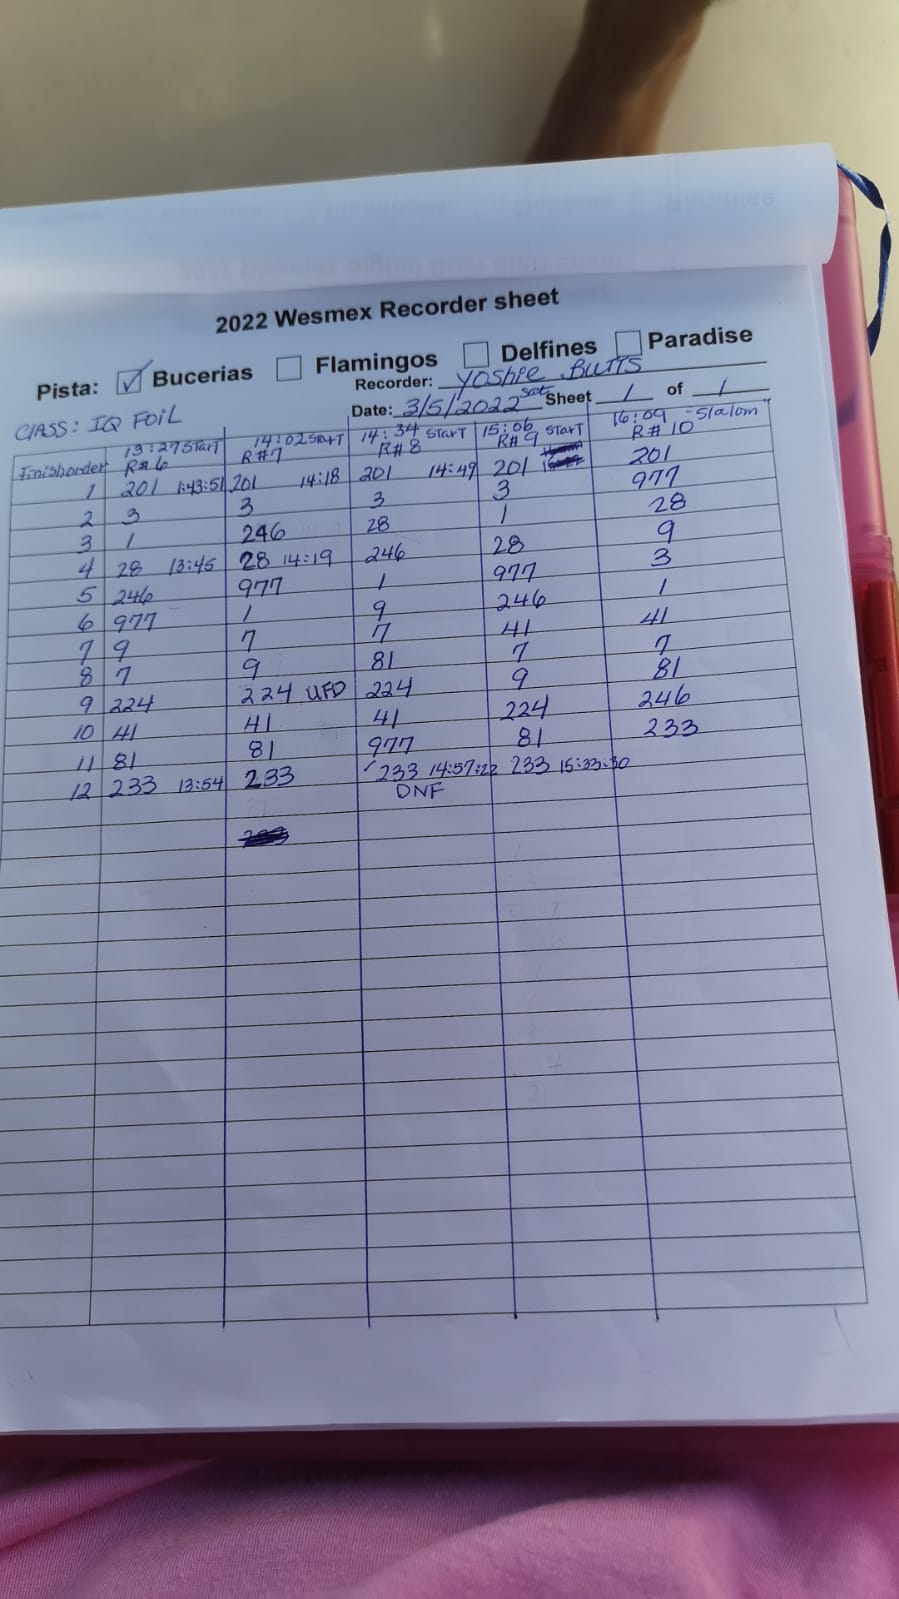 2022 Wesmex Recorder sheet
Pista: ☑ Bucerias ☐ Flamingos ☐ Delfines ☐ Paradise
Recorder: Yoshie Butts
CLASS: IQ FOiL Date: 3/5/2022 Sat Sheet 1 of 1
13:27 Start 14:02 Start 14:34 Start 15:06 Start 16:09 - Slalom
Finishorder R#6 R#7 R#8 R#9 R#10
1 201 1:43:51 201 14:18 201 14:49 201 201
2 3 3 3 3 977
3 1 246 28 1 28
4 28 13:45 28 14:19 246 28 9
5 246 977 1 977 3
6 977 1 9 246 1
7 9 7 7 41 41
8 7 9 81 7 7
9 224 224 UFD 224 9 81
10 41 41 41 224 246
11 81 81 977 81 233
12 233 13:54 233 233 14:57:22 233 15:33:30
DNF